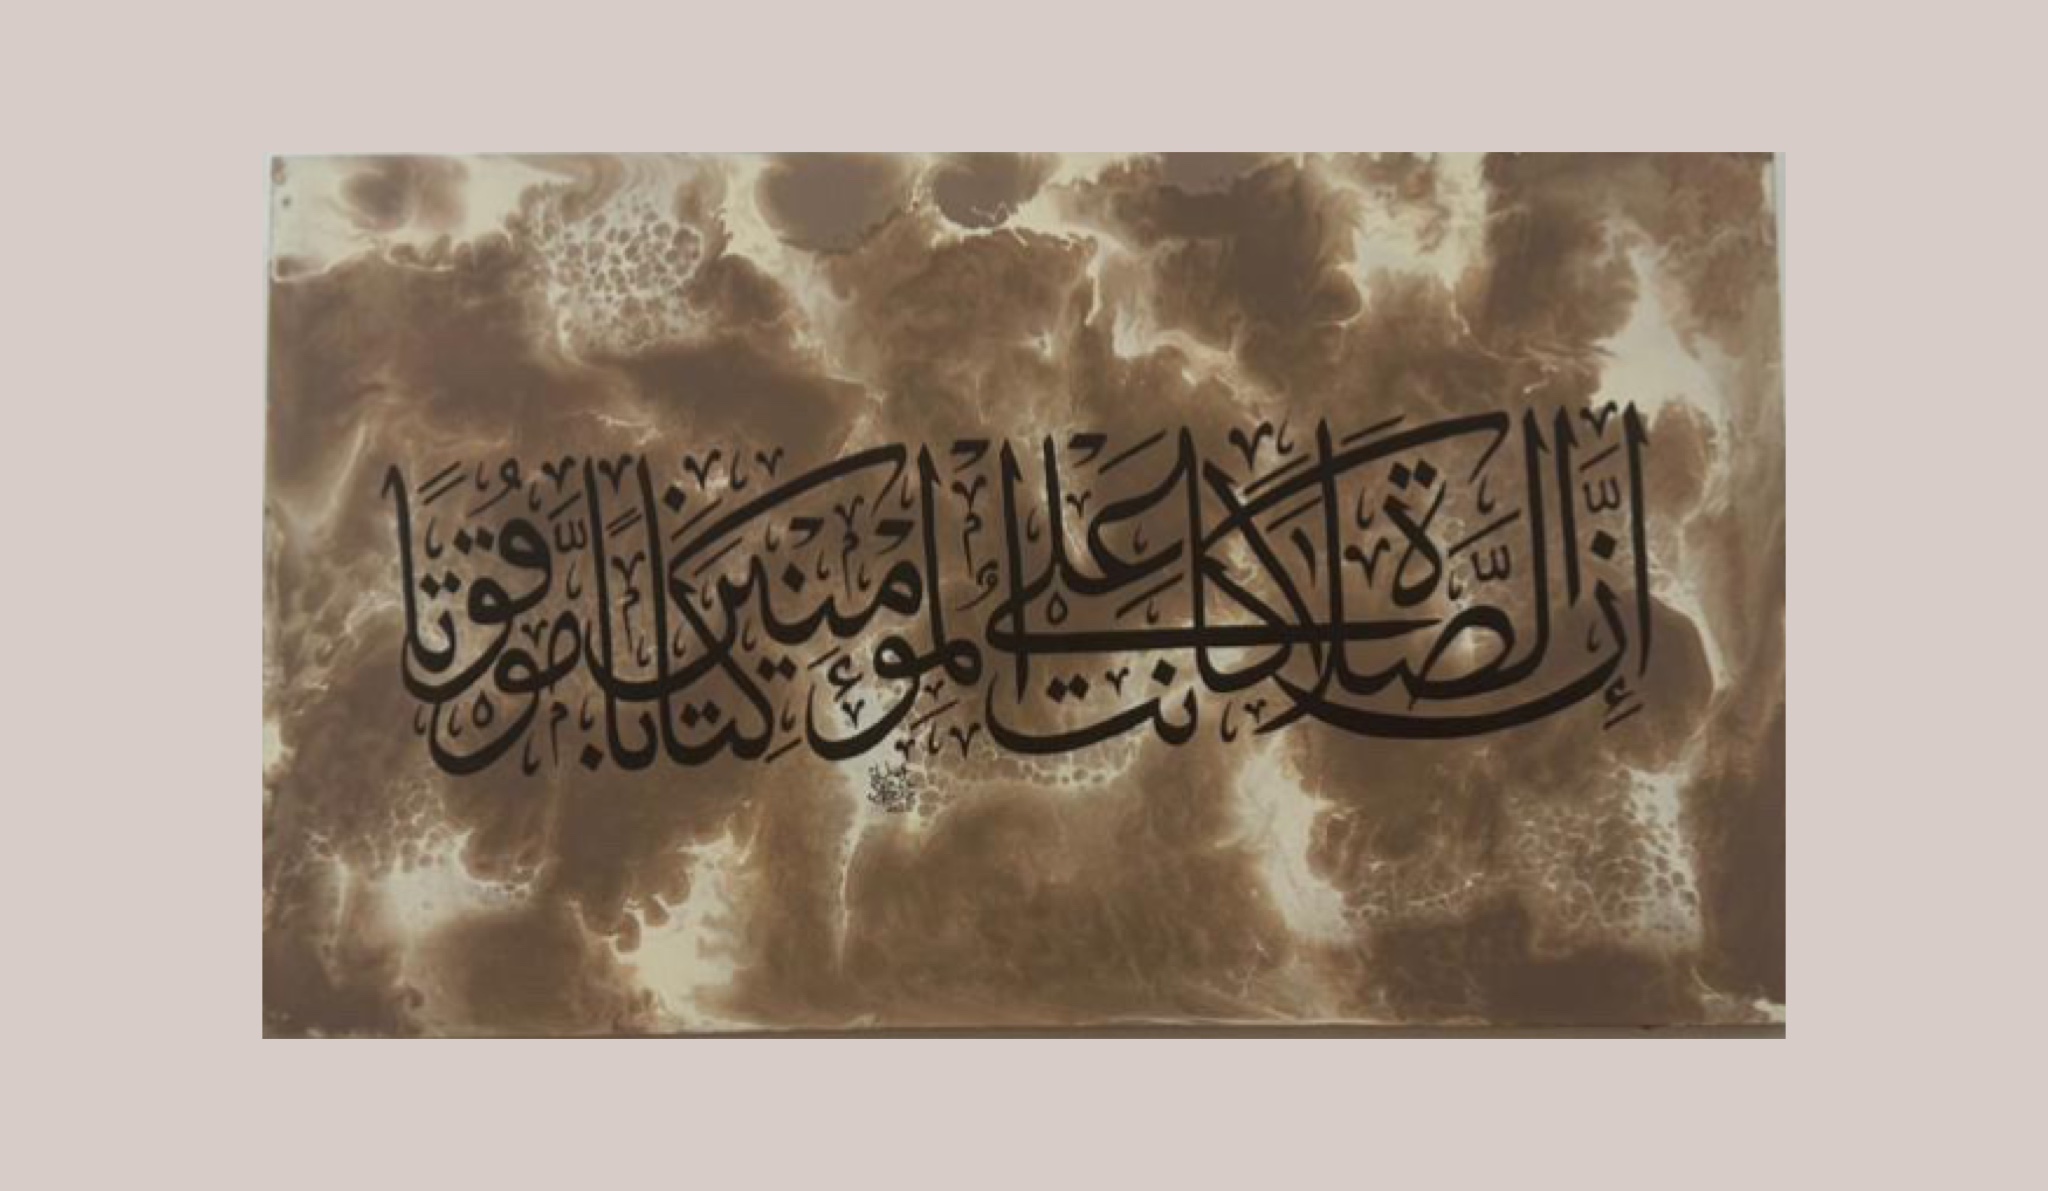 إِنَّ الصَّلَاةَ كَانَتْ عَلَى الْمُؤْمِنِينَ كِتَابًا مَّوْقُوتًا